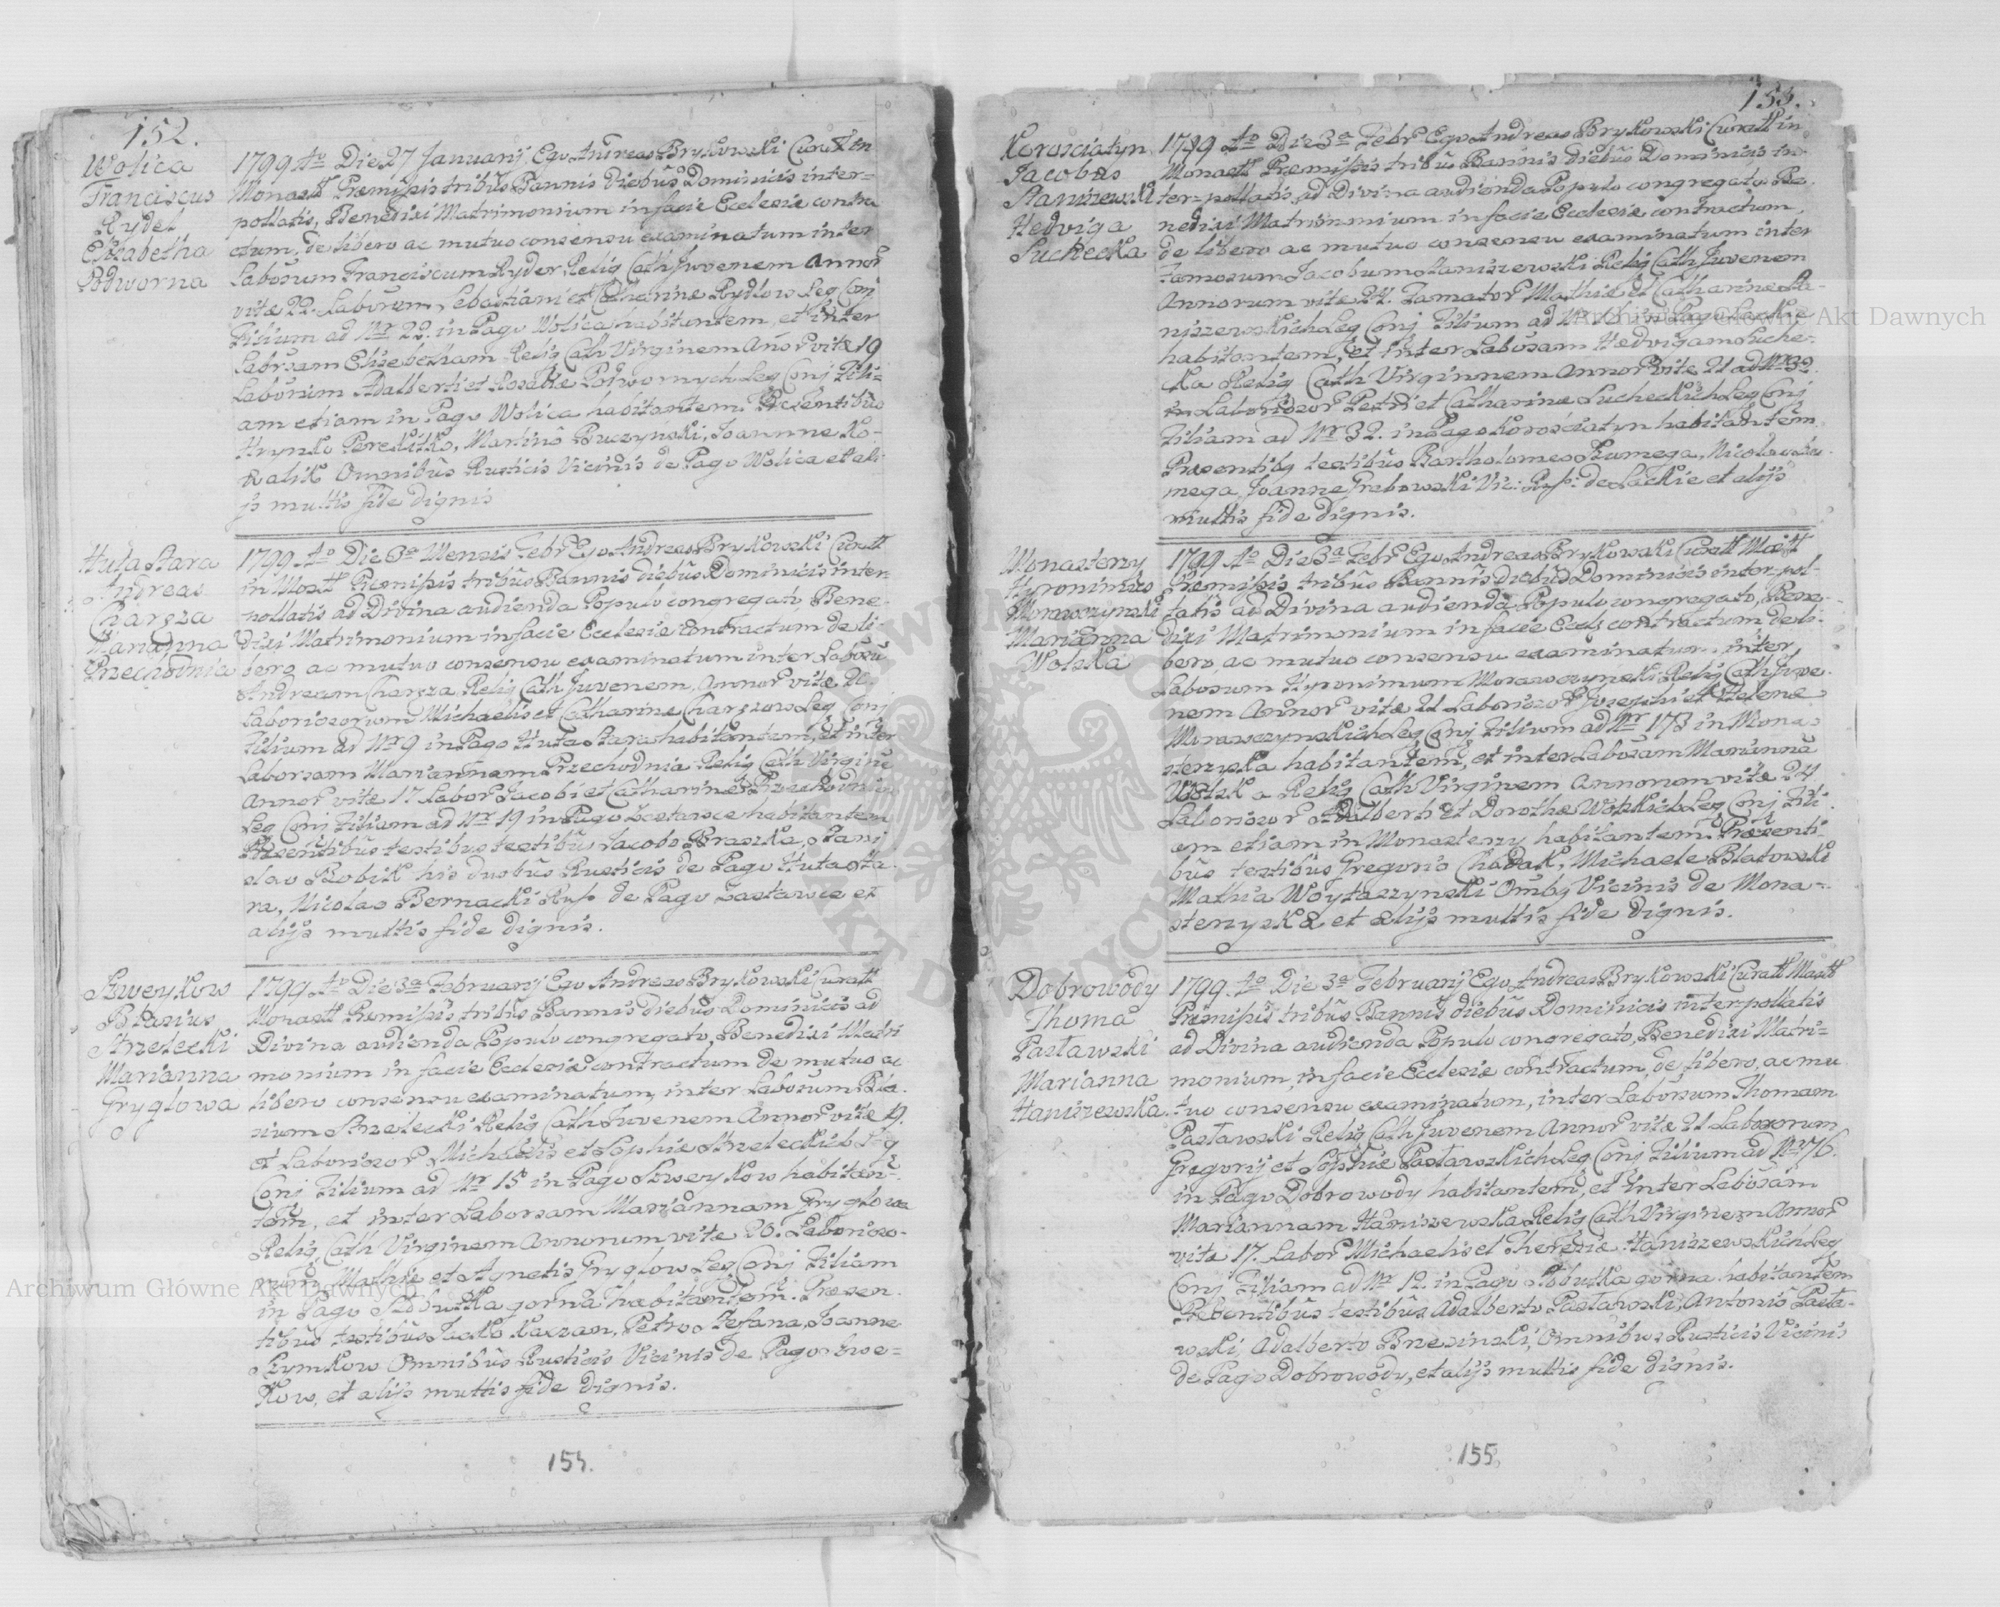 152.
Wolica
Franciscus
Rydel
Elisabetha
Podworna
1799 Ao Die 27 Januarij. Ego Andreas Brykowski Curatt in
Monastt Præmissis tribus Bannis diebus Dominicis inter=
pollatis, Benedixi Matrimonium in facie Ecclesie contra
ctum, de libero ac mutuo consensu examinatum inter
Laborum Franciscum Ryder Relig Cath Juvenem Annor
vitæ 22. Laborum Sebastiani et Catharine Rydlow Leg Conj
Filium ad Nr 22. in Pago Wolica habitantem, et inter
Laborsam Elisebetham Relig Cath Virginem Anor vitæ 19
Laborium Adalberti et Rosaliæ Podwornych Leg Conj Fili=
am etiam in Pago Wolica habitantem. Præsentibus
Hrynko Perekitko, Martino Buczynski, Joannne Ko=
walik Omnibus Rusticis Vicinis de Pago Wolica et ali
js multis fide dignis
Huta Stara
Andreas
Charsza
Marianna
Przechodnia
1799. Ao Die 3a Mensis Febr Ego Andreas Brykowski Curatt
in Mostt Præmissis tribus Bannis diebus Dominicis inter=
pollatis ad Divina audienda Populo congregato Bene=
dixi Matrimonium in facie Ecclesie contractum de li=
bero ac mutuo consensu examinatum inter Laborū
Andream Charsza Relig Cath Juvenem, Annor vitæ 20
Laboriosorum Michaelis et Catharine Charszow Leg Conj
Filium ad Nr 9 in Pago Huta Stara habitantem, et inter
Laborsam Mariannam Przechodnia Relig Cath Virginē
Annor vitæ 17 Labor Jacobi et Catharinæ
Leg Conj Filium ad Nr 19 in Pago Lastarsce habitantem
Præsentibus testibus testibus Jacobo Praszka, Stani
slao Skobik his duobus Rusticis de Pago Huta Sta=
ra, Nicolao Bernacki Rusp de Pago Lastarsce et
alijs multis fide dignis.
Szweykow
Blasius
Strzelecki
Marianna
Gryglowa
1799. Ao Die 3a Februarij Ego Andreas Brykowski Curatt
Monastt Præmissis tribus Bannis diebus Dominicis ad
Divina audienda Populo congregato, Benedixi Matri
monium in facie Ecclesiæ contractum de mutuo ac
libero consensu examinatum, inter Laborum Bla=
sium Strzelecki Relig Cath Juvenem Annor vitæ 19.
et Laboriosor Michaelis et Sophiæ Strzeleckich Leg
Conj Filium ad Nr 15 in Pago Szweykow habitan=
tem, et inter Laborsam Mariannam Gryglowa
Relig Cath Virginem Annorum vite 20. Laborioso=
rum Mathie et Agnetis Gryglow Leg Conj Filiam
in Pago Slobutka gorna habitantem. Præsen=
tibus testibus Jacko Kaszan, Petro Stefana, Joanne
Szymkow Omnibus Rusticis Vicinis de Pago Szwe=
kow, et alijs multis fide dignis.
155.
153.
Korosciatyn
Jacobus
Staniszewski
Hedviga
Suchecka
1799 Ao Die 3a Febr Ego Andreas Brykowski Curatt in
Monastt Præmissis tribus Bannis diebus Dominicis in=
ter=pollatis, ad Divina audienda Populo congregato Be=
nedixi Matrimonium in facie Ecclesiæ contractum,
de libero ac mutuo consensu examinatum inter
Famosum Jacobum Staniszewski Relig Cath Juvenem
Annorum vite 24. Famator Mathiæ et Catharine Sta=
niszewskich Leg Conj Filium ad Nr in Pago Lackie
habitantem, et inter Laborsam Hedvigam Suche=
cka Relig Cath Virginnem Annor vite 21 ad Nr 32.
in Laboriosor Petri et Catharinæ Sucheckich Leg Conj
Filiam ad Nr 32. in Pago Korosciatyn habitantem
Præsentibq testibus Bartholomeo Szumega, Nicolao Szu=
mega, Joanne Grabowski Vic: Rus: de Lackie et alijs
multis fide dignis.
Monasterzy
Hyronimus
Morawczynski
Marianna
Wolska
1799 Ao Die 3a Febr Ego Andreas Brykowski Curatt Mastt
Præmissis tribus Bannis diebus Dominicis inter pol=
latis ad Divina audienda Populo congregato, Bene=
dixi Matrimonium in facie Eccls contractum de li=
bero ac mutuo consensu examinatum inter
Laborum Hyronimum Morawczynski Relig Cath Juve=
nem Annor vitæ 21 Laboriosor Josephi et Helene
Morawczynskich Leg Conj Filium ad Nr 173 in Mona=
sterzyska habitantem, et inter Laborsam Mariannā
Wolska Relig Cath Virginem Annorum vitæ 24
Laboriosor Adalberti et Dorothæ Wolskich Leg Conj Fili
am etiam in Monasterzy habitantem. Præsenti=
bus testibus Gregorio Chadak, Michaele Blatowski
Mathia Woytaszynski Ombq Vicinis de Mona=
sterzyska et alijs multis fide dignis.
Dobrowody
Thoma
Pastawski
Marianna
Haniszewska.
1799. Ao Die 3a Februarij Ego Andreas Brykowski Curatt Mastt
Præmissis tribus Bannis diebus Dominicis interpollatis
ad Divina audienda Populo congregato, Benedixi Matri=
monium, in facie Ecclesiæ contractum, de libero, ac mu
tuo consensu examinatum, inter Laborum Thomam
Pastawski Relig Cath Juvenem Annor vitæ 21 Laborsorum
Gregorij et Sophiæ Pastawskich Leg Conj Filium ad Nr 76.
in Pago Dobrowody habitantem, et inter Laborsam
Mariannam Haniszewska Relig Cath Virginem Annor
vitæ 17. Labor Michaelis et Theresie Haniszewskich Leg
Conj Filiam ad Nr 12. in Pago Slobutka gorna habitantem
Præsentibus testibus Adalberto Pastawski, Antonio Pasta=
wski, Adalberto Brzezinski, Omnibus Rusticis Vicinis
de Pago Dobrowody, et alijs multis fide dignis.
155
Archiwum Główne Akt Dawnych
Archiwum Główne Akt Dawnych